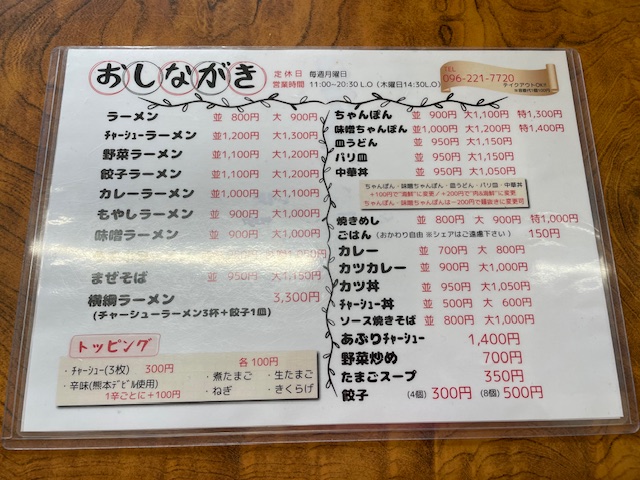 おしながき
定休日 毎週月曜日
営業時間 11:00~20:30 L.O (木曜日14:30L.O)
TEL
096-221-7720
テイクアウトOK!!
ラーメン 並 800円 大 900円
ﾁｬｰｼｭｰラーメン 並1,200円 大1,300円
野菜ラーメン 並1,100円 大1,200円
餃子ラーメン 並1,100円 大1,200円
カレーラーメン 並1,000円 大1,100円
もやしラーメン 並 900円 大1,000円
味噌ラーメン 並 900円 大1,000円
まぜそば 並 950円 大1,150円
横綱ラーメン 3,300円
(チャーシューラーメン3杯+餃子1皿)
トッピング
・ﾁｬｰｼｭｰ(3枚) 300円
・辛味(熊本デビル使用)
1辛ごとに+100円
各100円
・煮たまご ・生たまご
・ねぎ ・きくらげ
ちゃんぽん 並 900円 大1,100円 特1,300円
味噌ちゃんぽん 並1,000円 大1,200円 特1,400円
皿うどん 並 950円 大1,150円
バリ皿 並 950円 大1,150円
中華丼 並 950円 大1,050円
ちゃんぽん・味噌ちゃんぽん・皿うどん・バリ皿・中華丼
+100円で"海鮮"に変更／+200円で"肉&海鮮"に変更
ちゃんぽん・味噌ちゃんぽんは−200円で麺抜きに変更可
焼きめし 並 800円 大 900円 特1,000円
ごはん (おかわり自由 ※シェアはご遠慮下さい) 150円
カレー 並 700円 大 800円
カツカレー 並 900円 大1,000円
カツ丼 並 950円 大1,050円
ﾁｬｰｼｭｰ丼 並 500円 大 600円
ソース焼きそば 並 800円 大1,000円
あぶりﾁｬｰｼｭｰ 1,400円
野菜炒め 700円
たまごスープ 350円
餃子 (4個) 300円 (8個) 500円